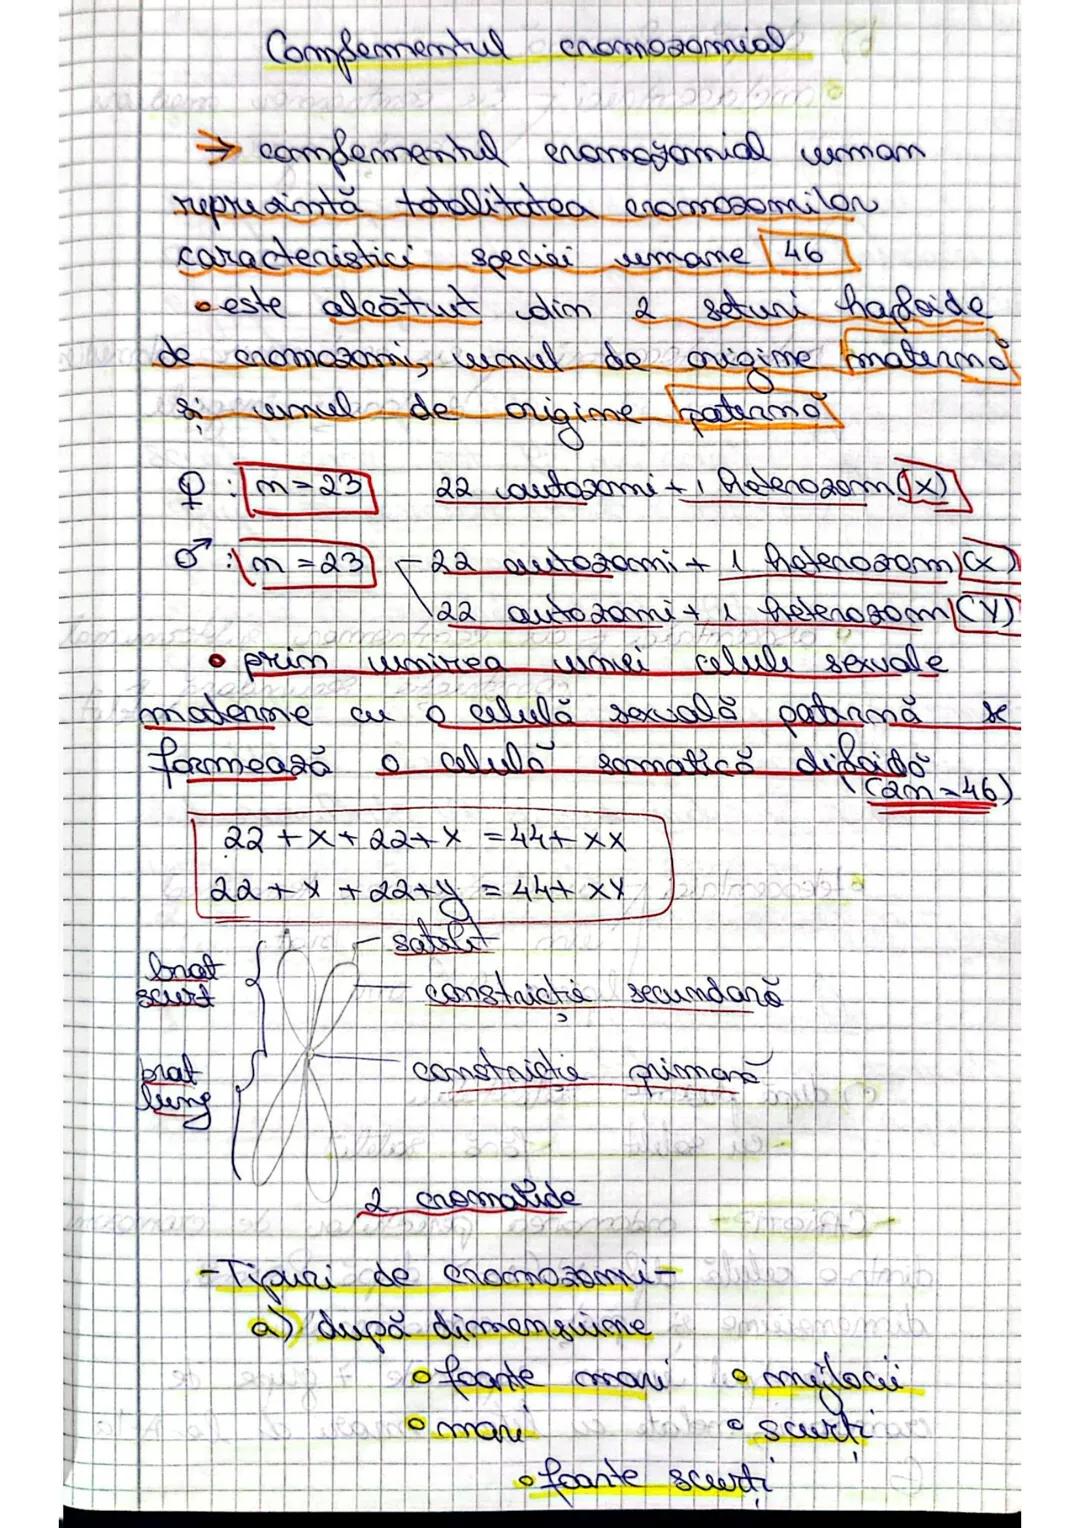 Complementul cromozomial
→ complementul cromozomial uman
reprezintă totalitatea cromozomilor
caracteristici speciei umane 46
• este alcătuit din 2 seturi haploide
de cromozomi, unul de origine maternă
și unul de origine paternă
♀ : n=23 22 autozomi + 1 heterozom (X)
♂ : n=23 22 autozomi + 1 heterozom (X)
22 autozomi + 1 heterozom (Y)
• prin unirea unei celule sexuale
materne cu o celulă sexuală paternă se
formează o celulă somatică diploidă
(2n=46)
22 + X + 22 + X = 44 + XX
22 + X + 22 + y = 44 + XY
satelit
braț
scurt
constricție secundară
constricție primară
braț
lung
2 cromatide
- Tipuri de cromozomi -
a) după dimensiune
o foarte mari o mijlocii
o mari o scurți
o foarte scurți